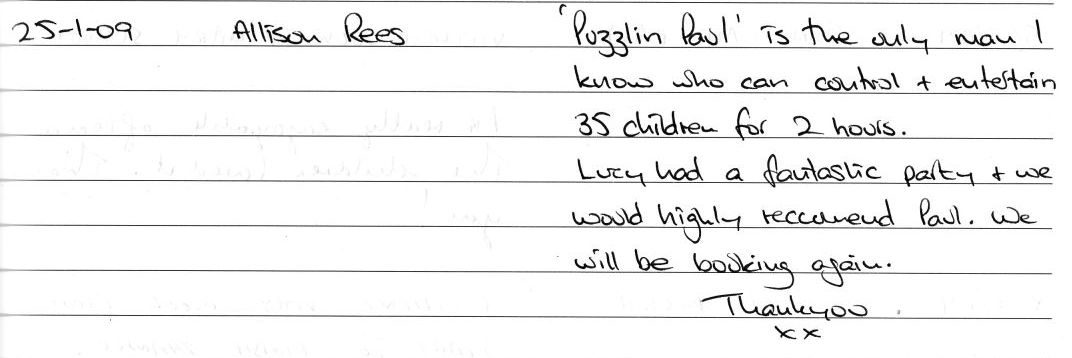 25-1-09 Allison Rees 'Puzzlin Paul' is the only man I
know who can control + entertain
35 children for 2 hours.
Lucy had a fantastic party + we
would highly reccomend Paul. We
will be booking again.
Thankyou
xx